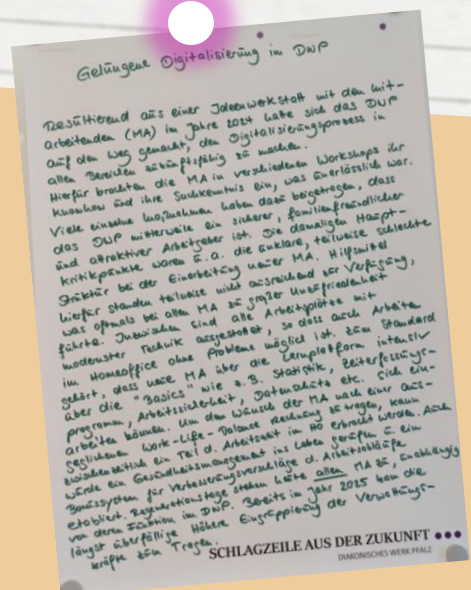 Gelungene Digitalisierung im DWP
Resultierend aus einer Ideenwerkstatt mit den Mit-
arbeitenden (MA) im Jahre 2024 hatte sich das DWP
auf den Weg gemacht, den Digitalisierungsprozess in
allen Bereichen zukunftsfähig zu machen.
Hierfür brachten die MA in verschiedenen Workshops ihr
Knowhow und ihre Sachkenntnis ein, was unerlässlich war.
Viele einzelne Maßnahmen haben dazu beigetragen, dass
das DWP mittlerweile ein sicherer, familienfreundlicher
und attraktiver Arbeitgeber ist. Die damaligen Haupt-
kritikpunkte waren u.a. die unklare, teilweise schlechte
Struktur bei der Einarbeitung neuer MA. Hilfsmittel
hierfür standen teilweise nicht ausreichend zur Verfügung,
was oftmals bei allen MA zu großer Unzufriedenheit
führte. Inzwischen sind alle Arbeitsplätze mit
modernster Technik ausgestattet, so dass auch Arbeiten
im Homeoffice ohne Probleme möglich ist. Zum Standard
gehört, dass neue MA über die Lernplattform intensiv
über die "Basics" wie z.B. Statistik, Zeiterfassungs-
programm, Arbeitssicherheit, Datenschutz etc. sich ein-
arbeiten können. Um dem Wunsch der MA nach einer aus-
geglichenen Work-Life-Balance Rechnung zu tragen, kann
zwischenzeitlich ein Teil d. Arbeitszeit im HO erbracht werden. Auch
wurde ein Gesundheitsmanagement ins Leben gerufen u. ein
Bonussystem für Verbesserungsvorschläge d. Arbeitsabläufe
etabliert. Regenerationstage stehen heute allen MA zu, unabhängig
von deren Funktion im DWP. Bereits im Jahr 2025 kam die
längst überfällige Höhere Eingruppierung der Verwaltungs-
kräfte zum Tragen.
SCHLAGZEILE AUS DER ZUKUNFT
DIAKONISCHES WERK PFALZ